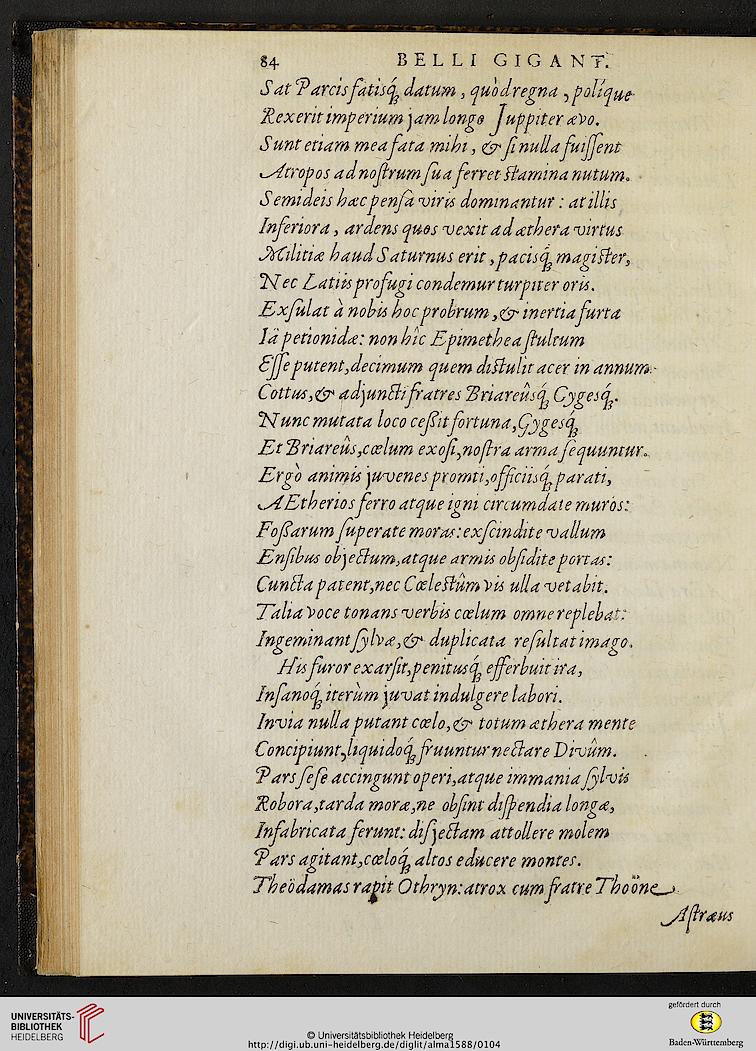 84 BELLI GIGANT.
Sat Parcis fatisq́; datum, quòd regna, políque
Rexerit imperium jam longo Juppiter ævo.
Sunt etiam mea fata mihi, & si nulla fuissent
Atropos ad nostrum sua ferret stamina nutum.
Semideis hæc pensa viris dominantur: at illis
Inferiora, ardens quos vexit ad æthera virtus
Militiæ haud Saturnus erit, pacisq́; magister,
Nec Latiis profugi condemur turpiter oris.
Exsulat à nobis hoc probrum, & inertia furta
Iäpetionidæ: non hîc Epimethea stultum
Esse putent, decimum quem distulit acer in annum.
Cottus, & adjuncti fratres Briareûsq́; Gygesq́;.
Nunc mutata loco cessit fortuna, Gygesq́;
Et Briareûs, cœlum exosi, nostra arma sequuntur.
Ergò animis juvenes promti, officiisq́; parati,
AEtherios ferro atque igni circumdate muros:
Fossarum superate moras: exscindite vallum
Ensibus objectum, atque armis obsidite portas:
Cuncta patent, nec Cœlestûm vis ulla vetabit.
Talia voce tonans verbis cœlum omne replebat:
Ingeminant sylvæ, & duplicata resultat imago.
His furor exarsit, penitusq́; efferbuit ira,
Insanoq́; iterùm juvat indulgere labori.
Invia nulla putant cœlo, & totum æthera mente
Concipiunt, liquidoq́; fruuntur nectare Divûm.
Pars sese accingunt operi, atque immania sylvis
Robora, tarda moræ, ne obsint dispendia longæ,
Infabricata ferunt: disjectam attollere molem
Pars agitant, cœloq́; altos educere montes.
Theödamas rapit Othryn: atrox cum fratre Thoöne
Astræus
UNIVERSITÄTS-
BIBLIOTHEK
HEIDELBERG
© Universitätsbibliothek Heidelberg
http://digi.ub.uni-heidelberg.de/diglit/alma1588/0104
gefördert durch
Baden-Württemberg